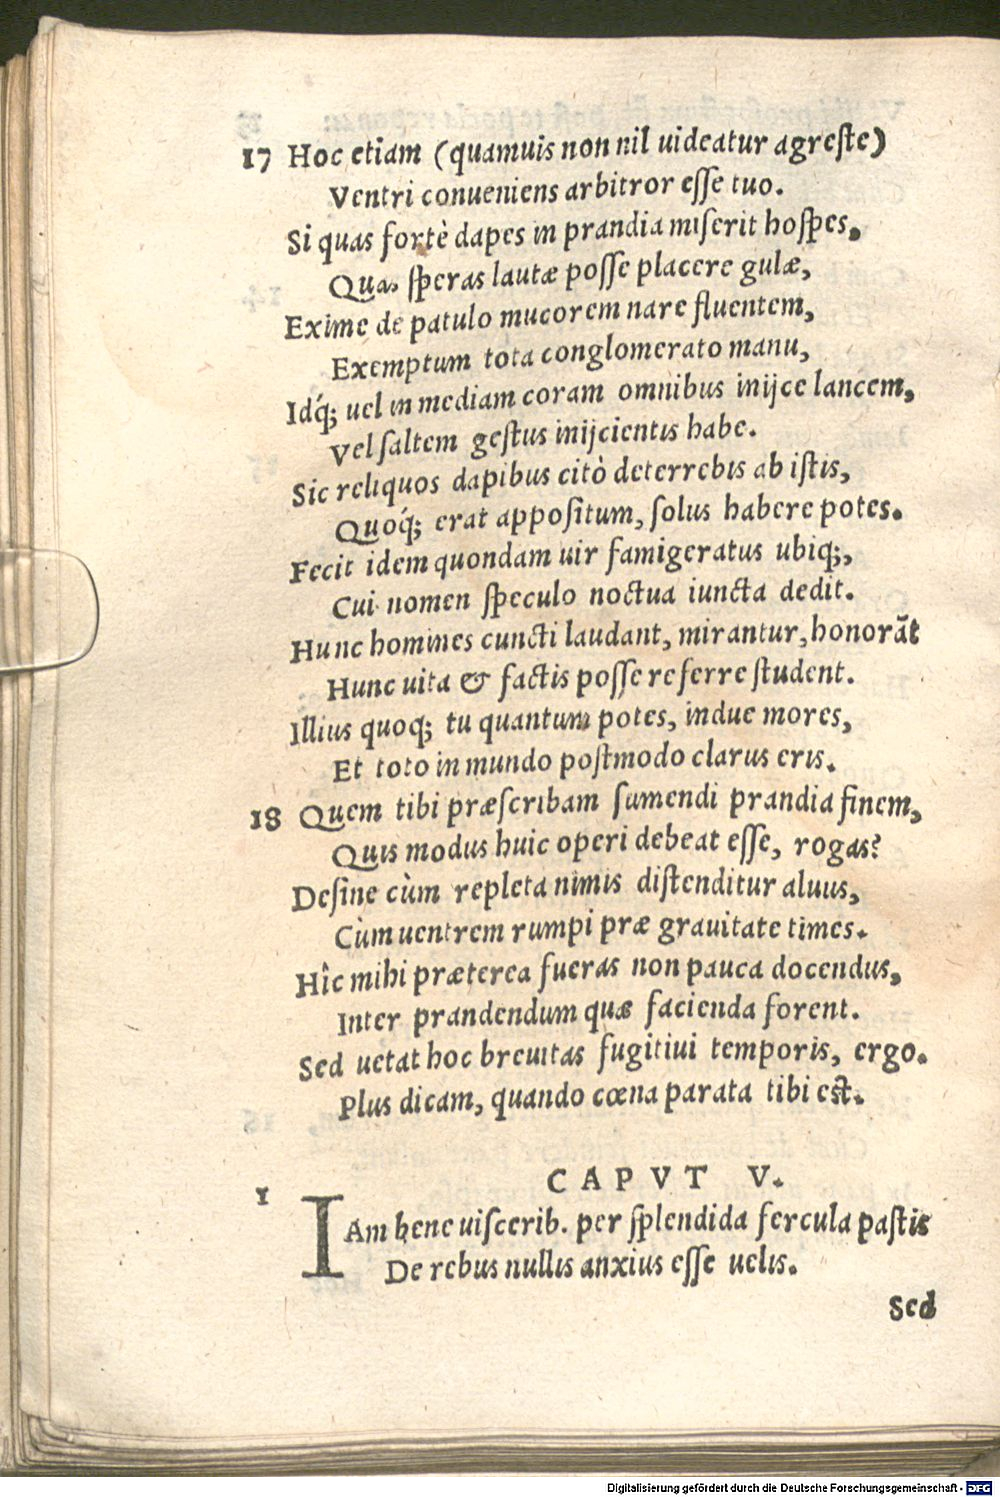 17 Hoc etiam (quamuis non nil uideatur agreſte)
Ventri conueniens arbitror eſſe tuo.
Si quas fortè dapes in prandia miſerit hoſpes,
Quas ſperas lautæ poſſe placere gulæ,
Exime de patulo mucorem nare fluentem,
Exemptum tota conglomerato manu,
Idq́; uel in mediam coram omnibus inijce lancem,
Vel ſaltem geſtus inijcientis habe.
Sic reliquos dapibus citò deterrebis ab iſtis,
Quoq́; erat appoſitum, ſolus habere potes.
Fecit idem quondam uir famigeratus ubiq;,
Cui nomen ſpeculo noctua iuncta dedit.
Hunc homines cuncti laudant, mirantur, honorãt
Hunc uita & factis poſſe referre ſtudent.
Illius quoq; tu quantum potes, indue mores,
Et toto in mundo poſtmodo clarus eris.
18 Quem tibi præſcribam ſumendi prandia finem,
Quis modus huic operi debeat eſſe, rogas?
Deſine cùm repleta nimis diſtenditur aluus,
Cùm uentrem rumpi præ grauitate times.
Hîc mihi præterea fueras non pauca docendus,
Inter prandendum quæ facienda forent.
Sed uetat hoc breuitas fugitiui temporis, ergo.
Plus dicam, quando cœna parata tibi eſt.
CAPVT V.
1 IAm bene uiſcerib. per ſplendida fercula paſtis
De rebus nullis anxius eſſe uelis.
Sed
Digitalisierung gefördert durch die Deutsche Forschungsgemeinschaft - DFG